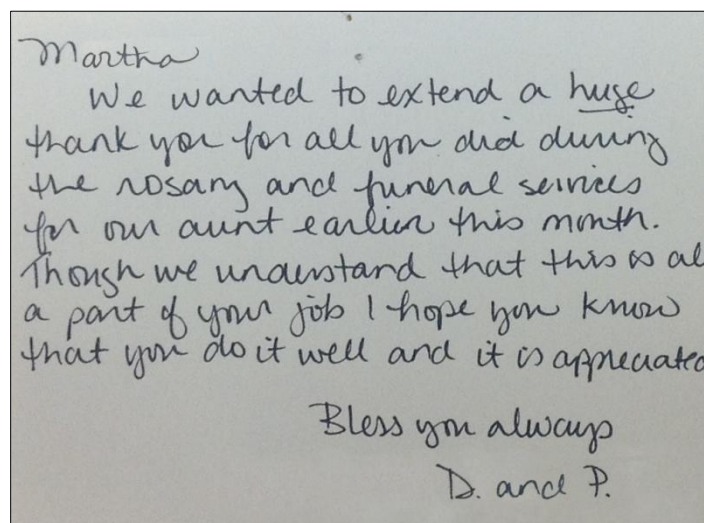 Martha
We wanted to extend a huge
thank you for all you did during
the rosary and funeral services
for our aunt earlier this month.
Though we understand that this is al
a part of your job I hope you know
that you do it well and it is appreciated
Bless you always
D. and P.